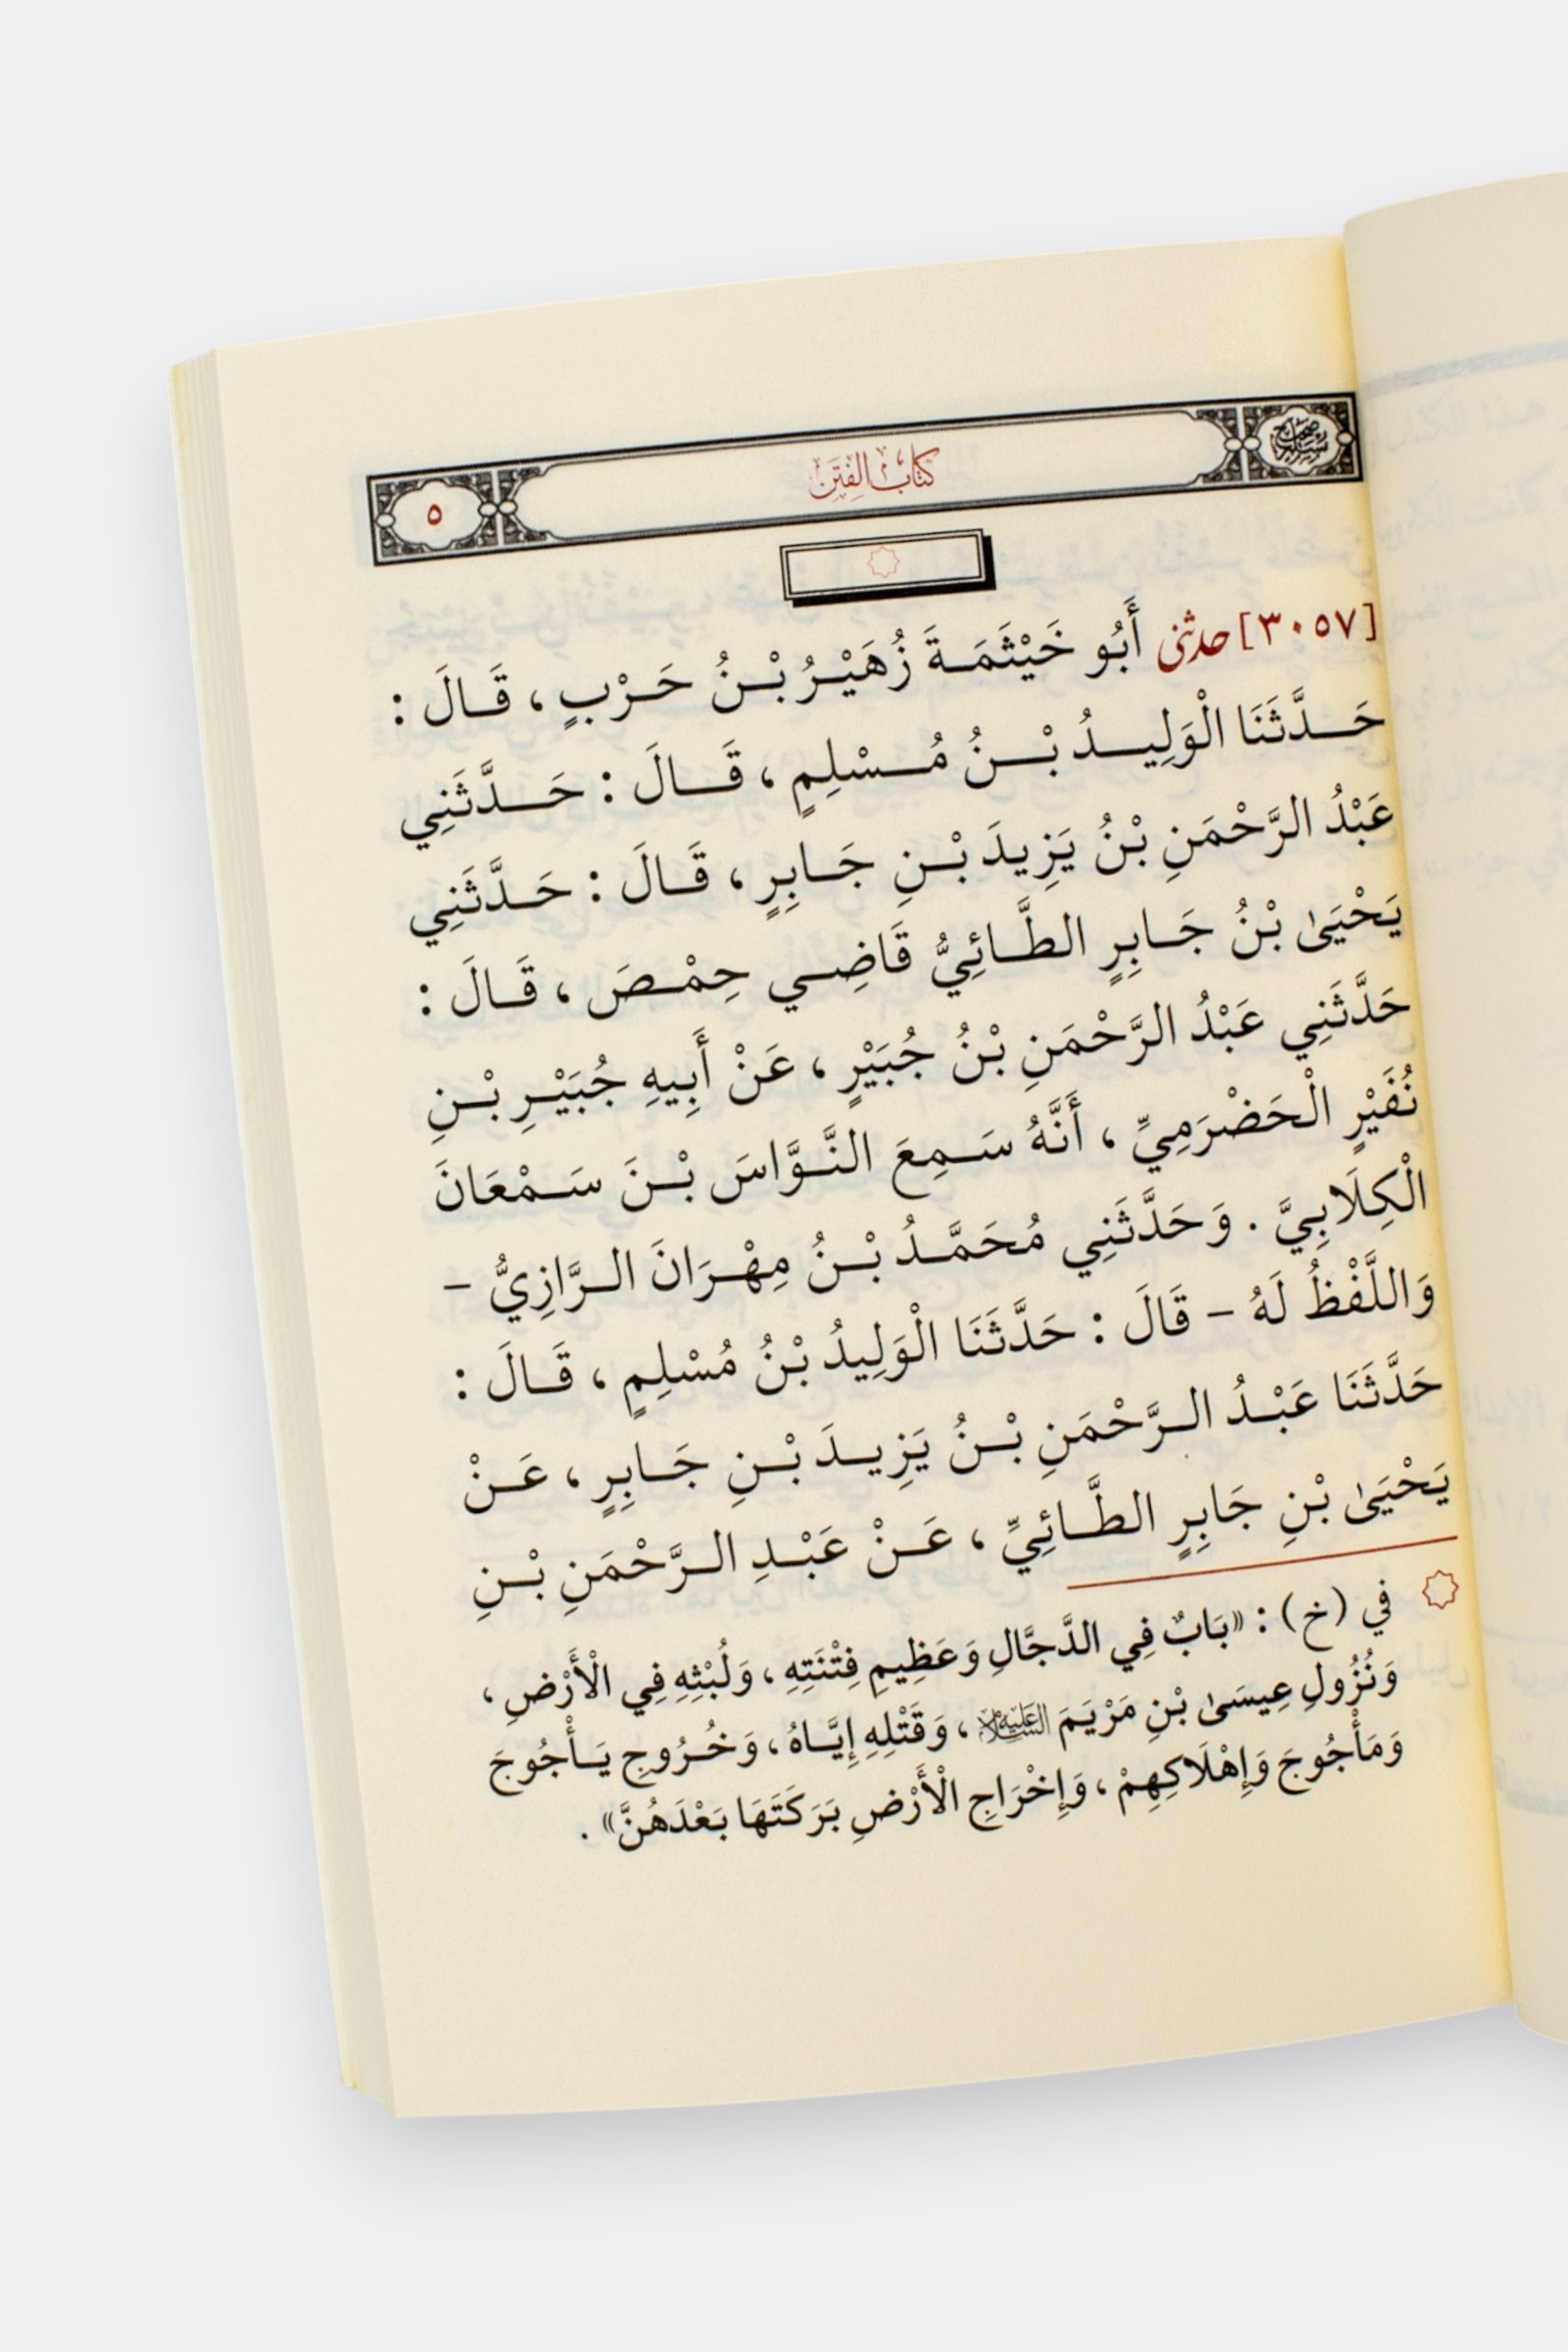 صحيح مسلم
كتاب الفتن
٥
[٣٠٥٧] حدثني أَبُو خَيْثَمَةَ زُهَيْرُ بْنُ حَرْبٍ ، قَالَ :
حَدَّثَنَا الْوَلِيدُ بْنُ مُسْلِمٍ ، قَالَ : حَدَّثَنِي
عَبْدُ الرَّحْمَنِ بْنُ يَزِيدَ بْنِ جَابِرٍ ، قَالَ : حَدَّثَنِي
يَحْيَىٰ بْنُ جَابِرٍ الطَّائِيُّ قَاضِي حِمْصَ ، قَالَ :
حَدَّثَنِي عَبْدُ الرَّحْمَنِ بْنُ جُبَيْرٍ ، عَنْ أَبِيهِ جُبَيْرِ بْنِ
نُفَيْرٍ الْحَضْرَمِيِّ ، أَنَّهُ سَمِعَ النَّوَّاسَ بْنَ سَمْعَانَ
الْكِلَابِيَّ . وَحَدَّثَنِي مُحَمَّدُ بْنُ مِهْرَانَ الرَّازِيُّ -
وَاللَّفْظُ لَهُ - قَالَ : حَدَّثَنَا الْوَلِيدُ بْنُ مُسْلِمٍ ، قَالَ :
حَدَّثَنَا عَبْدُ الرَّحْمَنِ بْنُ يَزِيدَ بْنِ جَابِرٍ ، عَنْ
يَحْيَىٰ بْنِ جَابِرٍ الطَّائِيِّ ، عَنْ عَبْدِ الرَّحْمَنِ بْنِ
في (خ) : «بَابٌ فِي الدَّجَّالِ وَعَظِيمِ فِتْنَتِهِ ، وَلُبْثِهِ فِي الْأَرْضِ ،
وَنُزُولِ عِيسَىٰ بْنِ مَرْيَمَ عليه السلام ، وَقَتْلِهِ إِيَّاهُ ، وَخُرُوجِ يَأْجُوجَ
وَمَأْجُوجَ وَإِهْلَاكِهِمْ ، وَإِخْرَاجِ الْأَرْضِ بَرَكَتَهَا بَعْدَهُنَّ» .